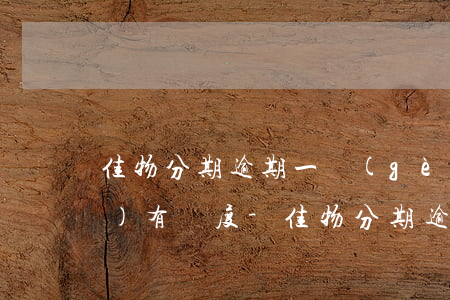 佳物分期逾期一 (gè
)有 度-佳物分期逾